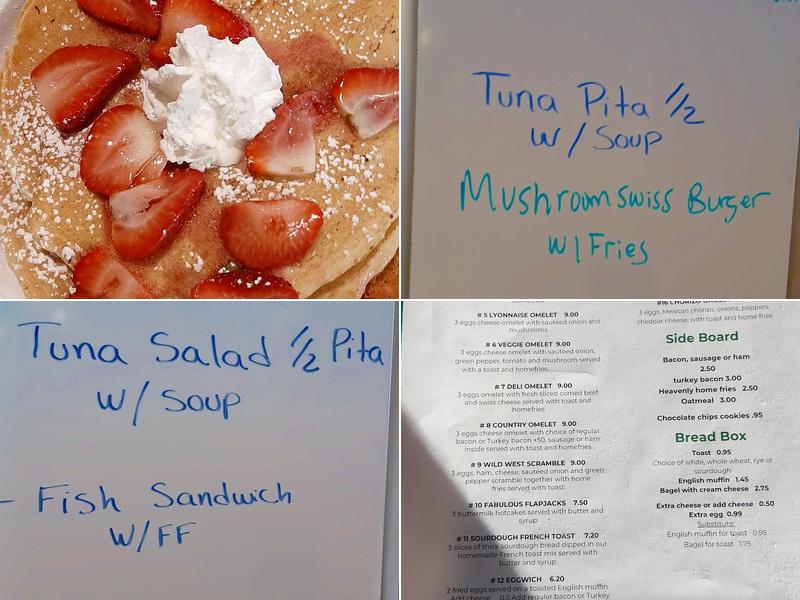 Tuna Pita 1/2
w/Soup
Mushroom swiss Burger
w/Fries
Tuna Salad 1/2 Pita
w/Soup
- Fish Sandwich
w/FF
# 5 LYONNAISE OMELET 9.00
3 eggs cheese omelet with sautéed onion and
mushrooms.
# 6 VEGGIE OMELET 9.00
3 eggs cheese omelet with sautéed onion,
green pepper, tomato and mushroom served
with a toast and homefries
# 7 DELI OMELET 9.00
3 eggs omelet with fresh sliced corned beef
and swiss cheese served with toast and
homefries
# 8 COUNTRY OMELET 9.00
3 eggs cheese omelet with choice of regular
bacon or Turkey bacon +50, sausage or ham
inside served with toast and homefries
# 9 WILD WEST SCRAMBLE 9.00
3 eggs, ham, cheese, sautéed onion and green
pepper scramble together with home
fries served with toast
# 10 FABULOUS FLAPJACKS 7.50
3 buttermilk hotcakes served with butter and
syrup
# 11 SOURDOUGH FRENCH TOAST 7.20
3 slices of thick sourdough bread dipped in our
homemade French toast mix served with
butter and syrup
# 12 EGGWICH 6.20
2 fried eggs served on a toasted English muffin
Add cheese 0.5 Add regular bacon or Turkey
#16 CHORIZO
3 eggs, Mexican chorizo, onions, peppers,
cheddar cheese, with toast and home fries
Side Board
Bacon, sausage or ham
2.50
turkey bacon 3.00
Heavenly home fries 2.50
Oatmeal 3.00
Chocolate chips cookies .95
Bread Box
Toast 0.95
Choice of white, whole wheat, rye or
sourdough
English muffin 1.45
Bagel with cream cheese 2.75
Extra cheese or add cheese 0.50
Extra egg 0.99
Substitute:
English muffin for toast 0.95
Bagel for toast 1.75